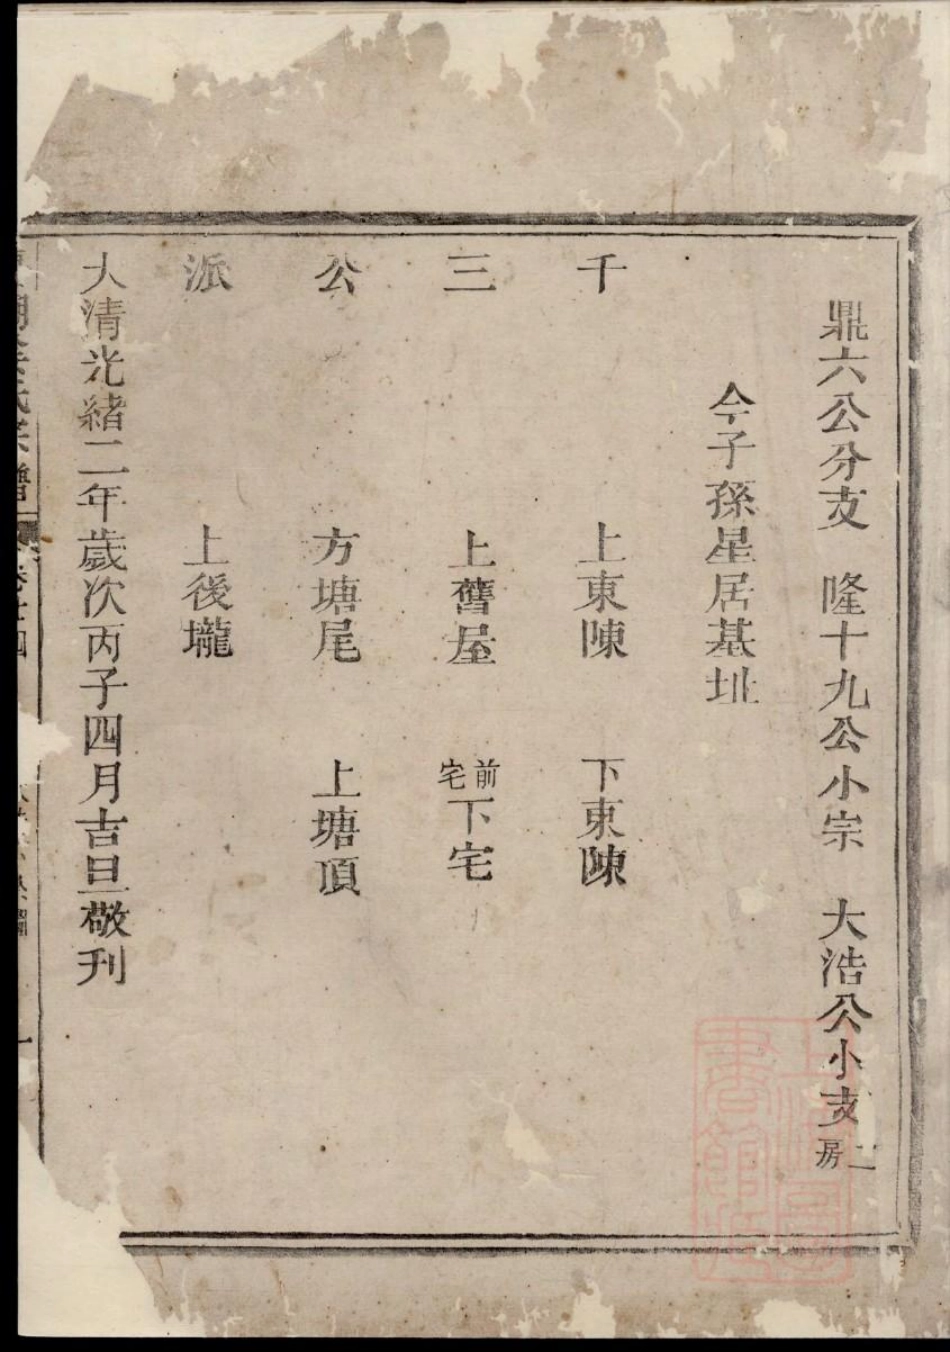 鼎六公分支　隆十九公小宗　大浩公小支二房
今子孫星居基址
千　上東陳　下東陳
三　上舊屋　前宅下宅
公　方塘尾　上塘頂
派　上後壠
大清光緒二年歲次丙子四月吉旦敬刊
氏宗譜　卷十四
上海圖書館藏